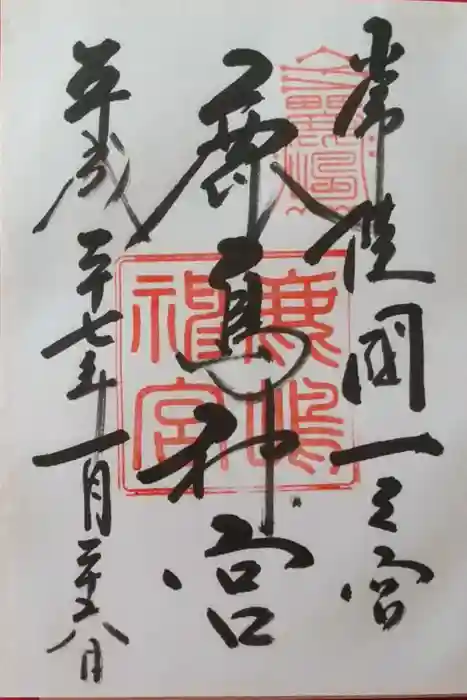 常陸国一之宮
鹿島神宮
平成二十七年一月二十八日
鹿嶋
神宮